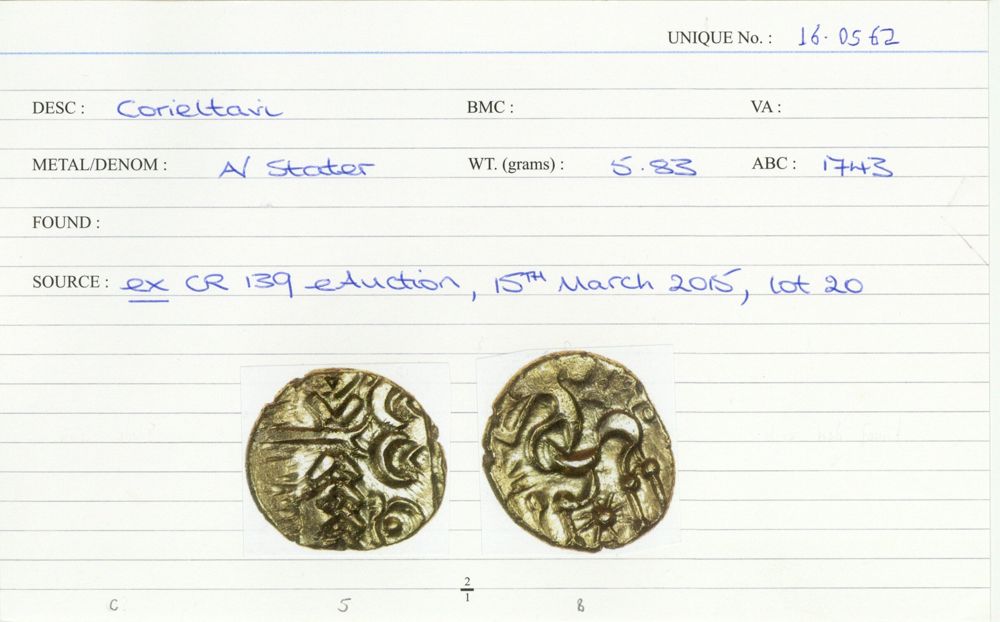 UNIQUE No. : 16.0562
DESC : Corieltavi BMC : VA :
METAL/DENOM : A/ Stater WT. (grams) : 5.83 ABC : 1743
FOUND :
SOURCE : ex CR 139 eAuction, 15TH March 2015, lot 20
2
1
C 5 B